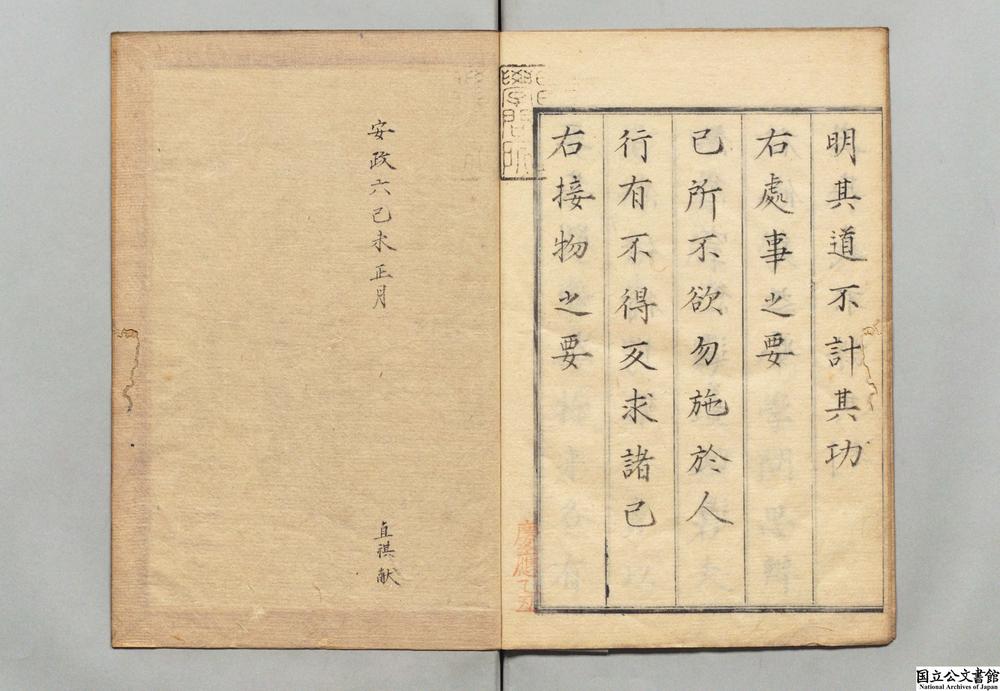 明其道不計其功
右處事之要
己所不欲勿施於人
行有不得反求諸己
右接物之要
慶應乙丑
學問所
安政六己未正月
直祺献
国立公文書館
National Archives of Japan